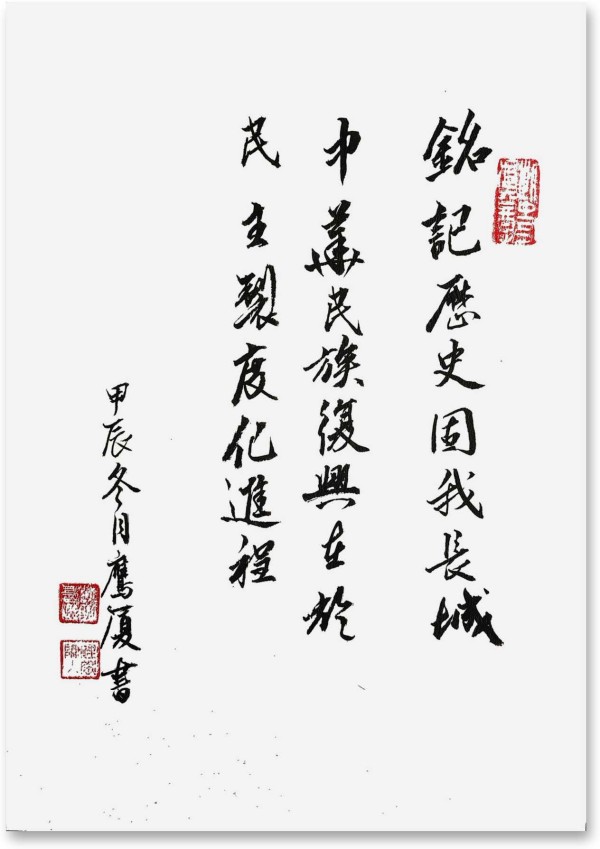 銘記歷史固我長城
中華民族復興在於
民主製度化進程
甲辰冬月鷹廈書